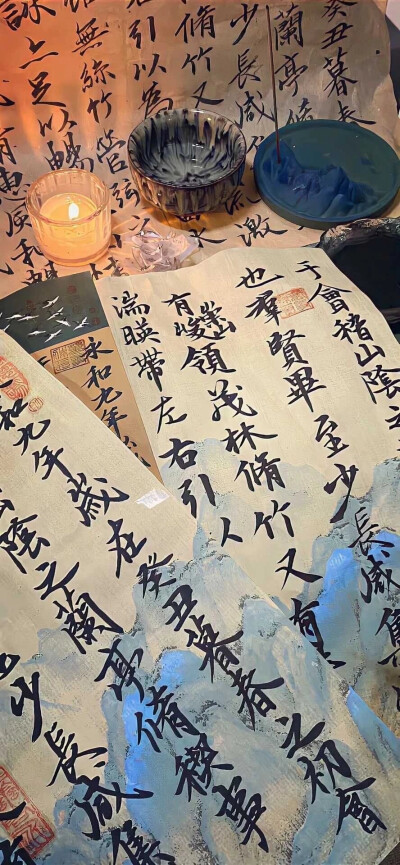 癸丑暮春
蘭亭脩
少長咸
脩竹又
引以為
無絲竹管弦
詠亦足以暢
于會稽山陰之
也羣賢畢至少長咸集
有崇山峻領茂林脩竹又有
湍暎帶左右引以
永和九年歲
和九年歲在癸丑暮春之初會
山陰之蘭亭脩禊事
少長咸集